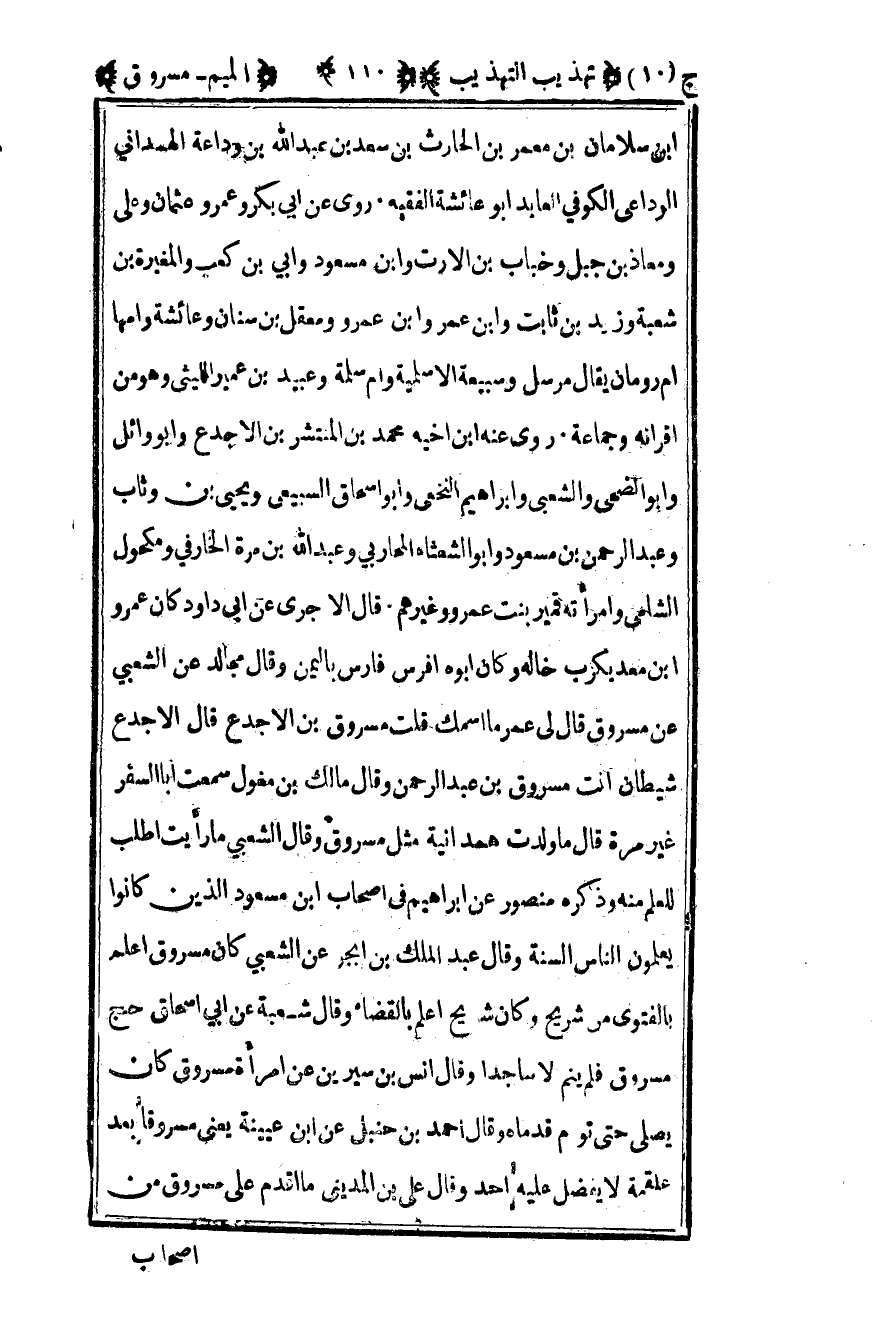 ج (١٠) تهذيب التهذيب ١١٠ الميم - مسروق
ابن سلامان بن معمر بن الحارث بن سعد بن عبدالله بن وداعة الهمداني
الوداعى الكوفي العابد ابو عائشة الفقيه٠ روى عن ابي بكر و عمر و عثمان وعلى
ومعاذ بن جبل وخباب بن الارت وابن مسعود وابي بن كعب والمغيرة بن
شعبة وزيد بن ثابت وابن عمر وابن عمرو ومعقل بن سنان وعائشة وامها
ام رومان يقال مرسل وسبيعة الاسلمية وام سلمة وعبيد بن عمير الليثى وهو من
اقرانه وجماعة٠ روى عنه ابن اخيه محمد بن المنتشر بن الاجدع وابو وائل
وابو الضحى والشعبي وابراهيم النخعى وابو اسحاق السبيعى ويحيى بن وثاب
وعبد الرحمن بن مسعود وابو الشعثاء المحاربي وعبدالله بن مرة الخارفي ومكحول
الشامى وامرأته قمير بنت عمرو وغيرهم٠ قال الاجرى عن ابى داود كان عمرو
ابن معد يكرب خاله وكان ابوه افرس فارس باليمن وقال مجالد عن الشعبي
عن مسروق قال لى عمر ما اسمك قلت مسروق بن الاجدع قال الاجدع
شيطان انت مسروق بن عبد الرحمن وقال مالك بن مغول سمعت ابا السفر
غير مرة قال ما ولدت همدانية مثل مسروق وقال الشعبي ما رأيت اطلب
للعلم منه وذكره منصور عن ابراهيم فى اصحاب ابن مسعود الذين كانوا
يعلمون الناس السنة وقال عبد الملك بن ابجر عن الشعبي كان مسروق اعلم
بالفتوى من شريح وكان شريح اعلم بالقضاء وقال شعبة عن ابي اسحاق حج
مسروق فلم ينم لا ساجدا وقال انس بن سيرين عن امرأة مسروق كان
يصلى حتى تورم قدماه وقال احمد بن حنبل عن ابن عيينة يعنى مسروقا بعد
علقمة لا يفضل عليه احد وقال على بن المديني ما اقدم على مسروق من
اصحاب